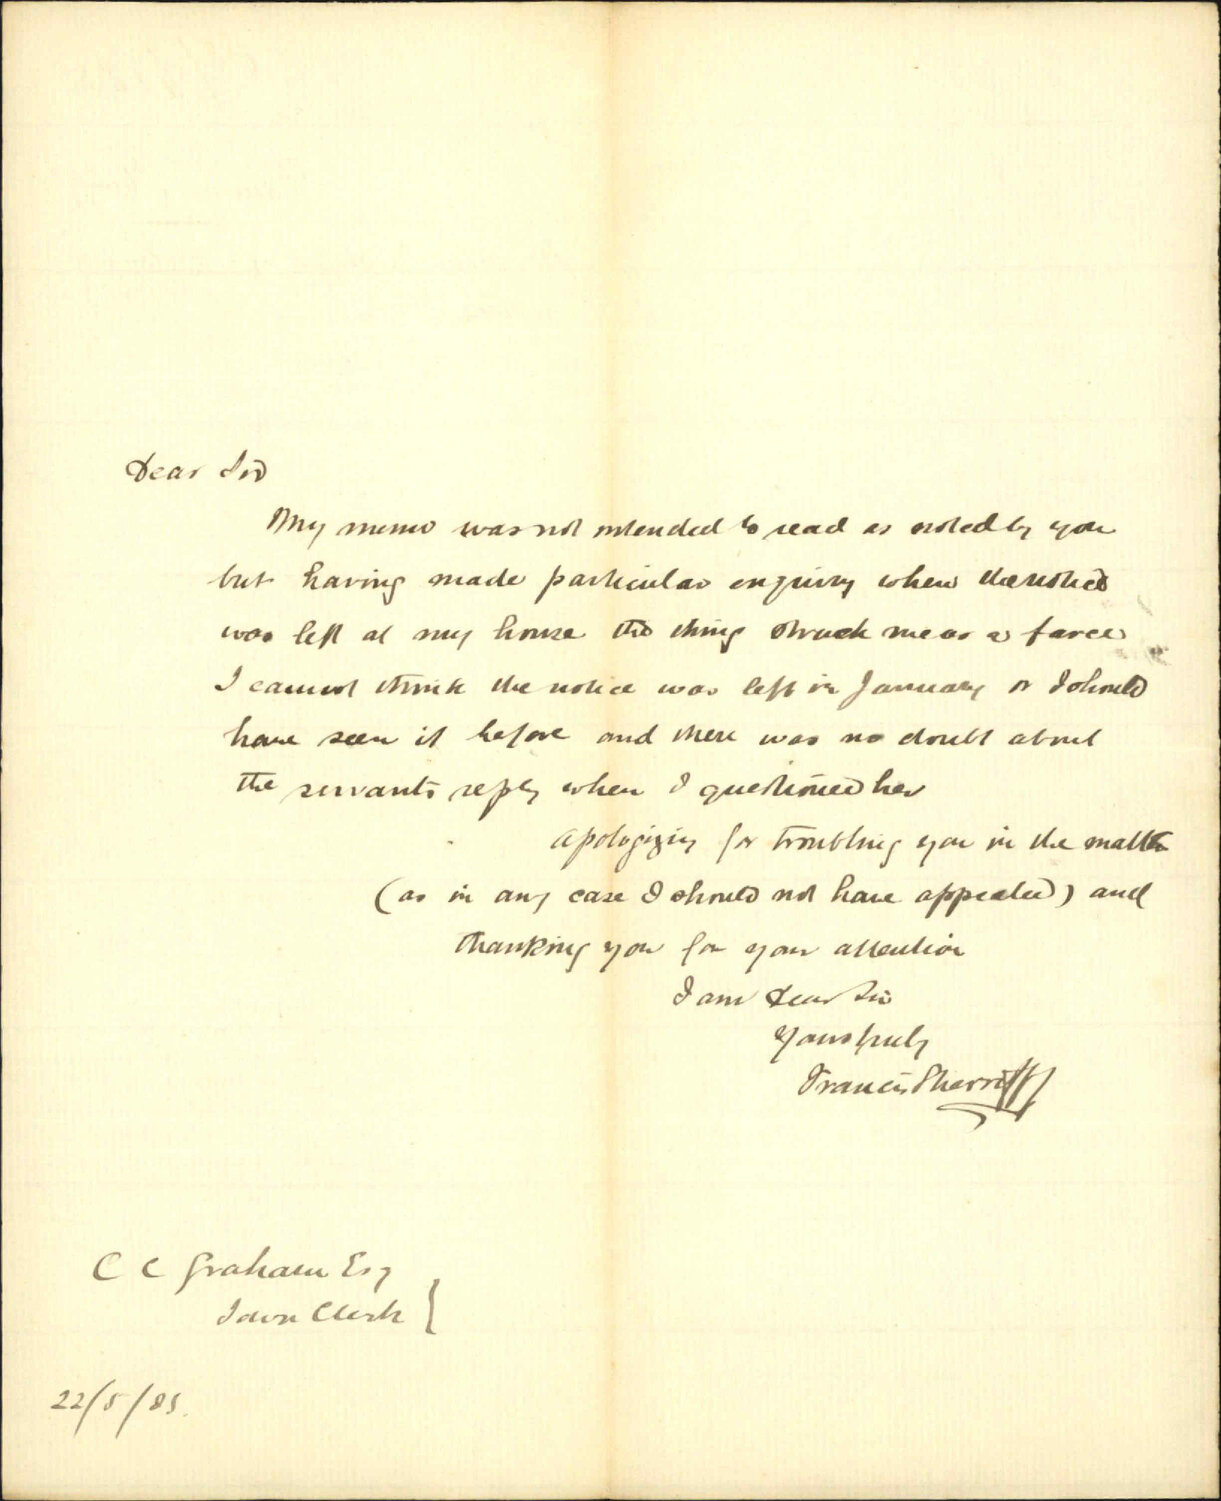 Dear Sir
My memo was not intended to read as noted by you
but having made particular enquiry when the notice
was left at my house the thing struck me as a farce
I cannot think the notice was left in January or I should
have seen it before and there was no doubt about
the servants reply when I questioned her
apologizing for troubling you in the matter
(as in any case I should not have appealed) and
thanking you for your attention
I am Dear Sir
Yours truly
Francis Sherriff
C C Graham Esq
Town Clerk }
22/5/85.